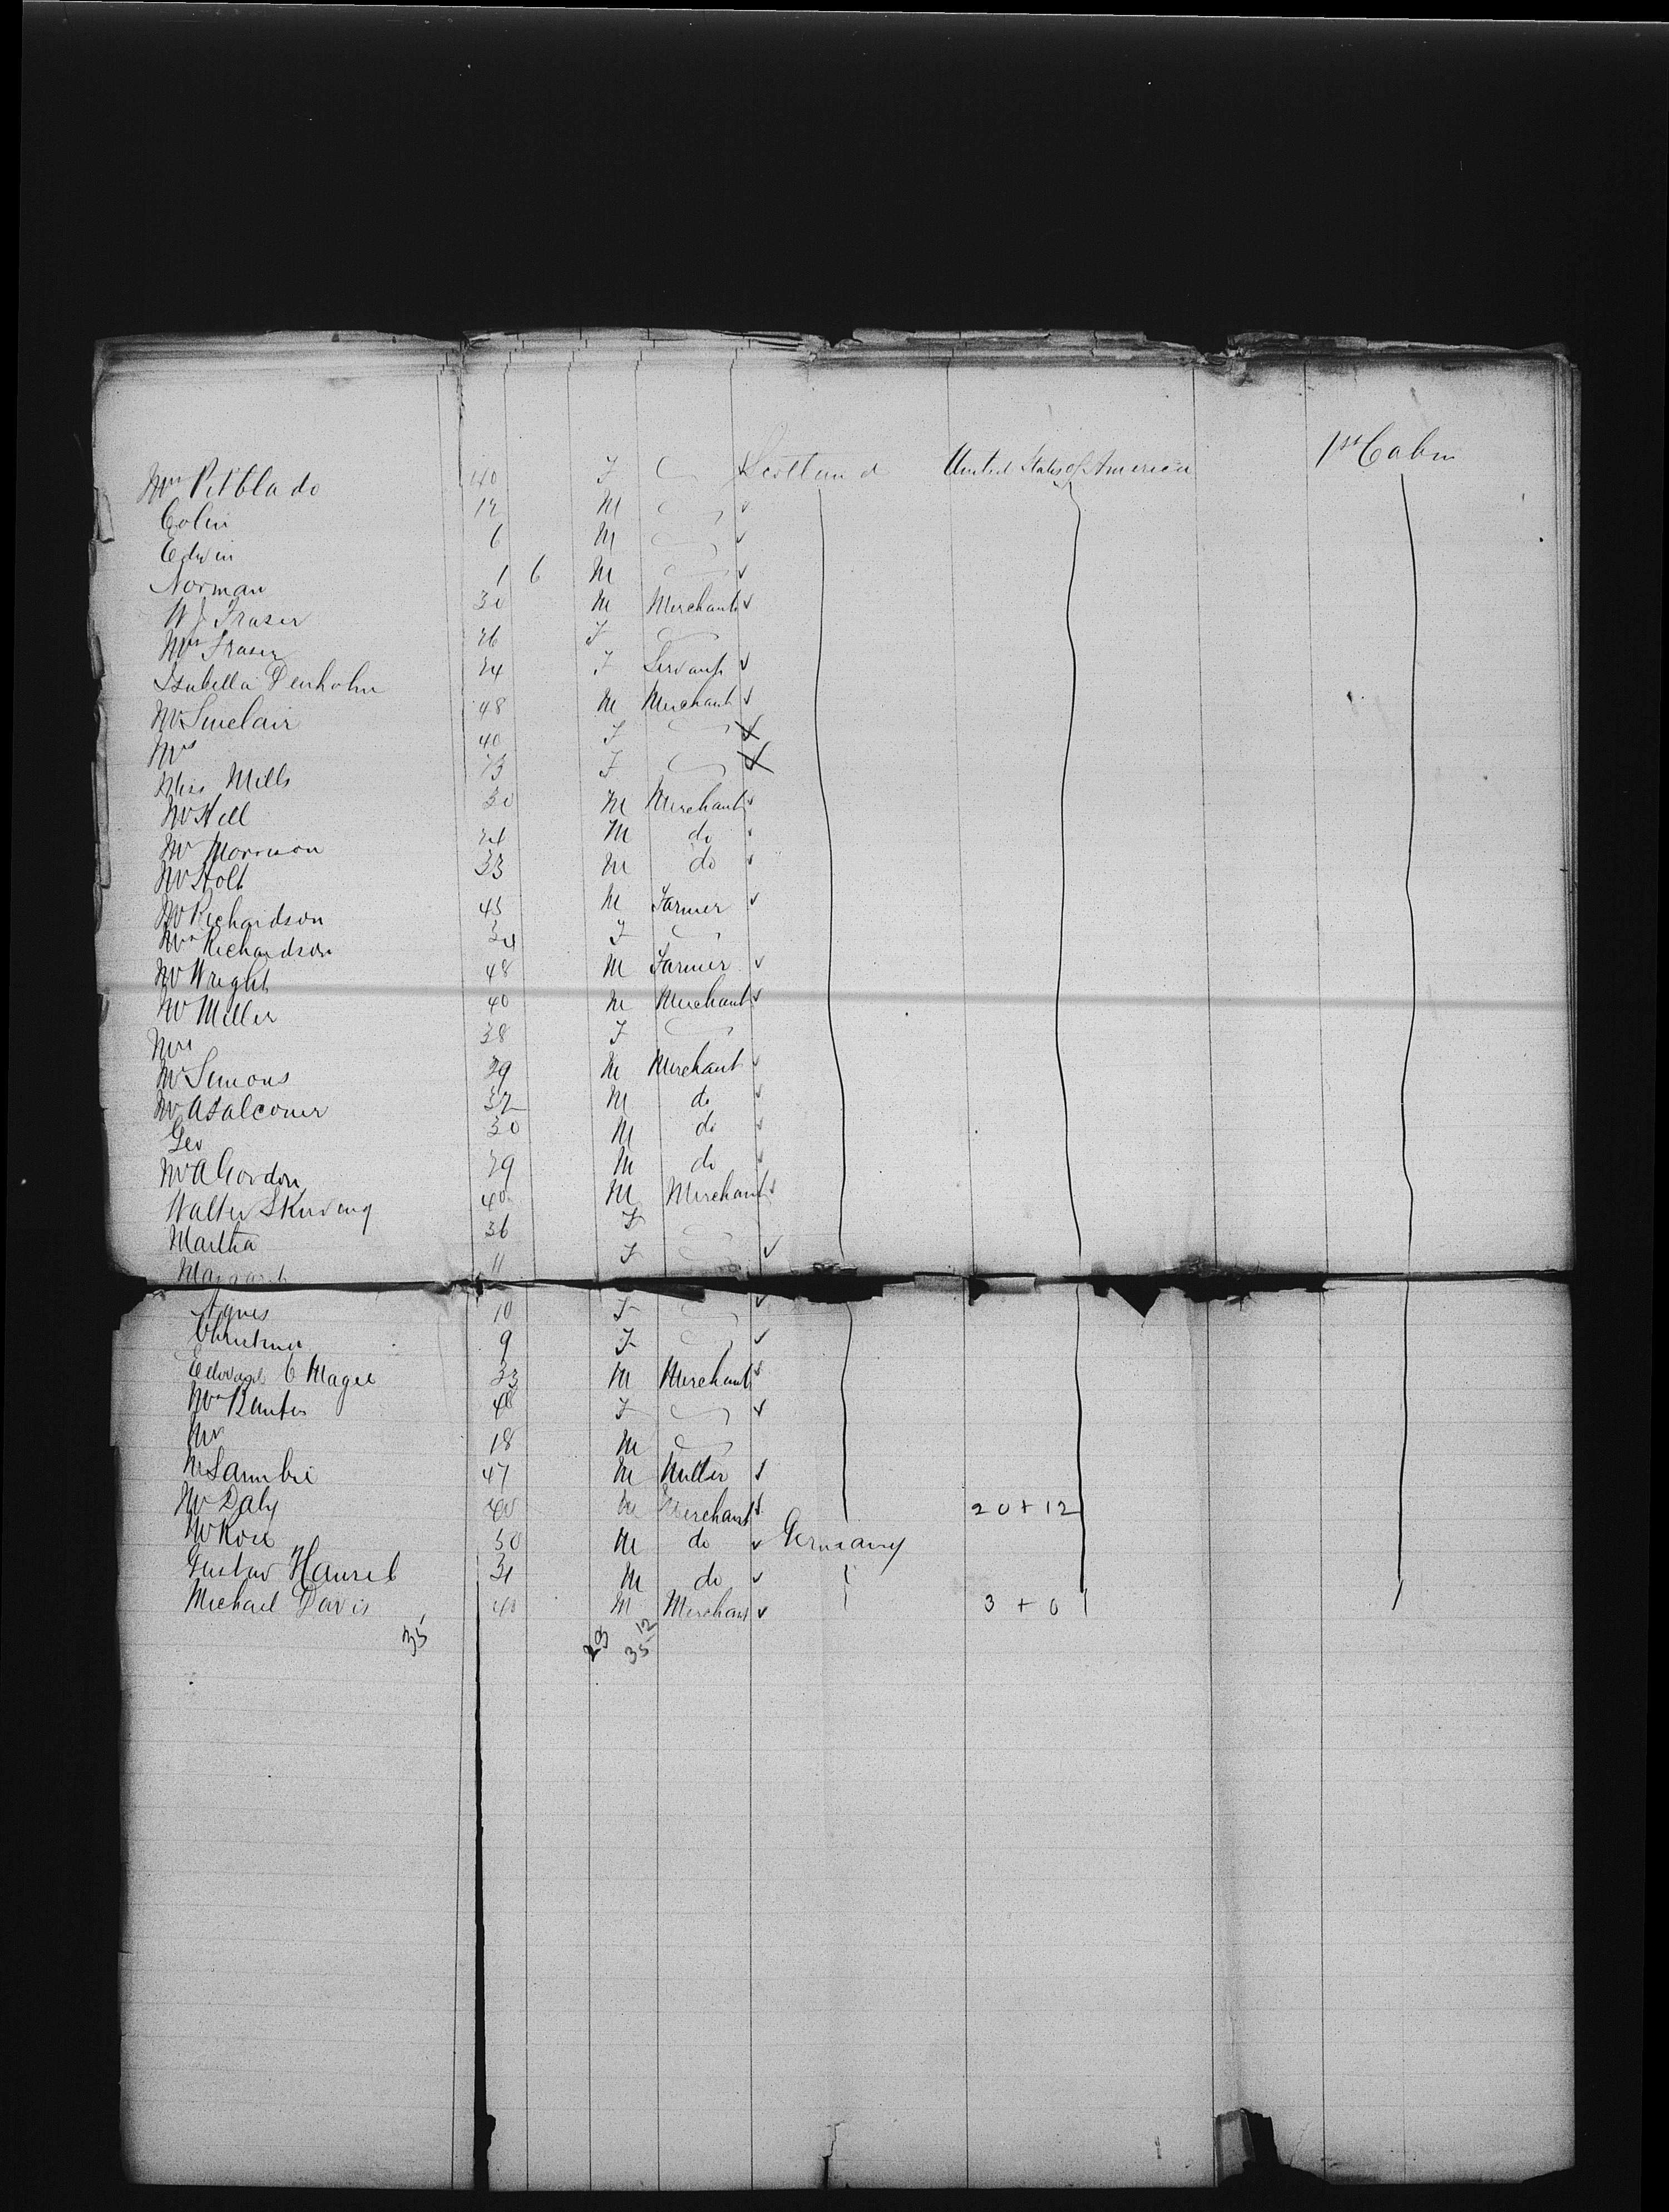 Mrs Pitblado 40 F Scotland United States of America 1st Cabin
Colin 12 M
Edwin 6 M
Norman 1 6 M
W J Fraser 30 M Merchant
Mrs Fraser 26 F
Isabella Denholm 24 F Servant
Mr Sinclair 48 M Merchant
Mrs 40 F
Miss Mills 23 F
Mr Hill 30 M Merchant
Mr Morrison M do
Mr Holt 33 M do
Mr Richardson 45 M Farmer
Mrs Richardson 34 F
Mr Wright 48 M Farmer
Mr Miller 40 M Merchant
Mrs 38 F
Mr Simons 29 M Merchant
Mr A Falconer 32 M do
Geo 30 M do
Mr A Gordon 29 M do
Walter Skirving 40 M Merchant
Martha 36 F
Margaret 11 F
Agnes 10 F
Christina 9 F
Edward C Magee 33 M Merchant
Mrs F
Mr 18 M
Mr 47 M
Mr Daly 40 M Merchant 20 + 12
Mr Rose 50 M do Germany
Gustav 31 M do
Michael Davis 40 M Merchant 3 + 0
35 23 12
35